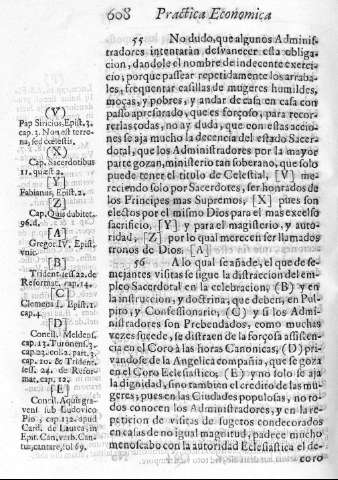 608 Practica Economica
55 No dudo, que algunos Adminis-
tradores intentarán desvanecer esta obliga-
cion, dandole el nombre de indecente exerci-
cio; porque passear repetidamente los arraba-
les, frequentar casillas de mugeres humildes,
moças, y pobres, y andar de casa en casa con
passo apresurado, que es forçoso, para recor-
rerlas todas, no ay duda, que con estas accio-
nes se aja mucho la decencia del estado Sacer-
dotal, que los Administradores por la mayor
parte gozan, ministerio tan soberano, que solo
puede tener el titulo de Celestial, [V] me-
reciendo solo por Sacerdotes, ser honrados de
los Principes mas Supremos, [X] pues son
electos por el mismo Dios para el mas excelso
sacrificio, [Y] y para el magisterio, y auto-
ridad, [Z] por lo qual merecen ser llamados
tronos de Dios. [A]
56 A lo qual se añade, el que de se-
mejantes visitas se sigue la distraccion del em-
pleo Sacerdotal en la celebracion, (B) y en
la instruccion, y doctrina, que deben, en Pul-
pito, y Confessionario, (C) y si los Admi-
nistradores son Prebendados, como muchas
vezes suceder, se distraen de la forçosa assisten-
cia en el Coro à las horas Canonicas, (D) pri-
vandose de la Angelica compañia, que se goza
en el Coro Eclesiastico, (E) y no solo se aja
la dignidad, sino tambien el credito de las mu-
geres; pues en las Ciudades populosas, no to-
dos conocen los Administradores, y en la re-
peticion de visitas de sugetos condecorados
en casas de no igual magnitud, padece mucho
menoscabo con la autoridad Eclesiastica el de-
coro
(V)
Pap Siricius, Epist. 3.
cap. 3. Non est terre-
na, sed cœlestis.
(X)
Cap. Sacerdotibus
11. quæst. 2.
[Y]
Fabianus, Epist. 2.
[Z]
Cap. Quis dubitet,
96. d.
[A]
Gregor. IV. Epist.
vnic.
[B]
Trident. sess. 22. de
Reformat. cap. 14.
[C]
Clemens I. Epist. 1.
cap. 4.
[D]
Concil. Meldens.
cap. 13. Turonens. 3.
cap. 22. col. 2. part. 3.
cap. 102. & Trident.
sess. 24. de Refor-
mat. cap. 12.
[E]
Concil. Aquisgra-
vens sub Ludovico
Pio, cap. 132. apud
Card. de Laurea, in
Epit. Can. verb. Can-
tus, cantare, fol. 69.